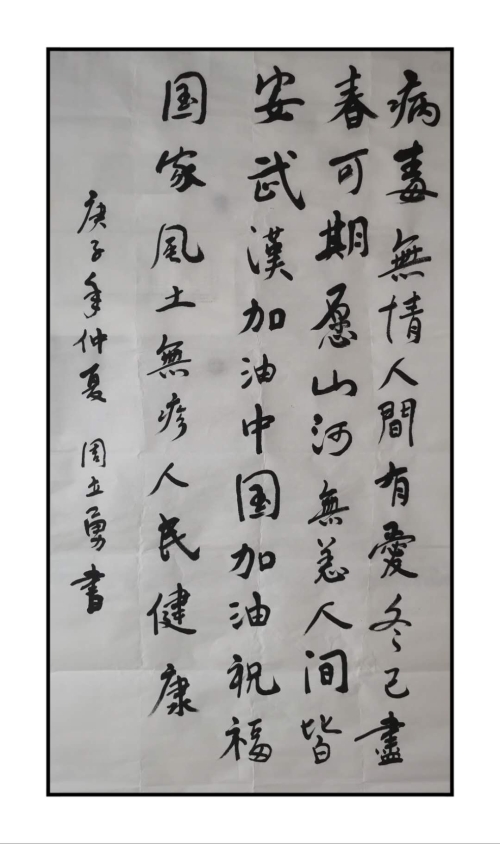 病毒無情人間有愛冬已盡
春可期愿山河無恙人间皆
安武漢加油中国加油祝福
国家風土無疼人民健康
庚子年仲夏 周立勇书